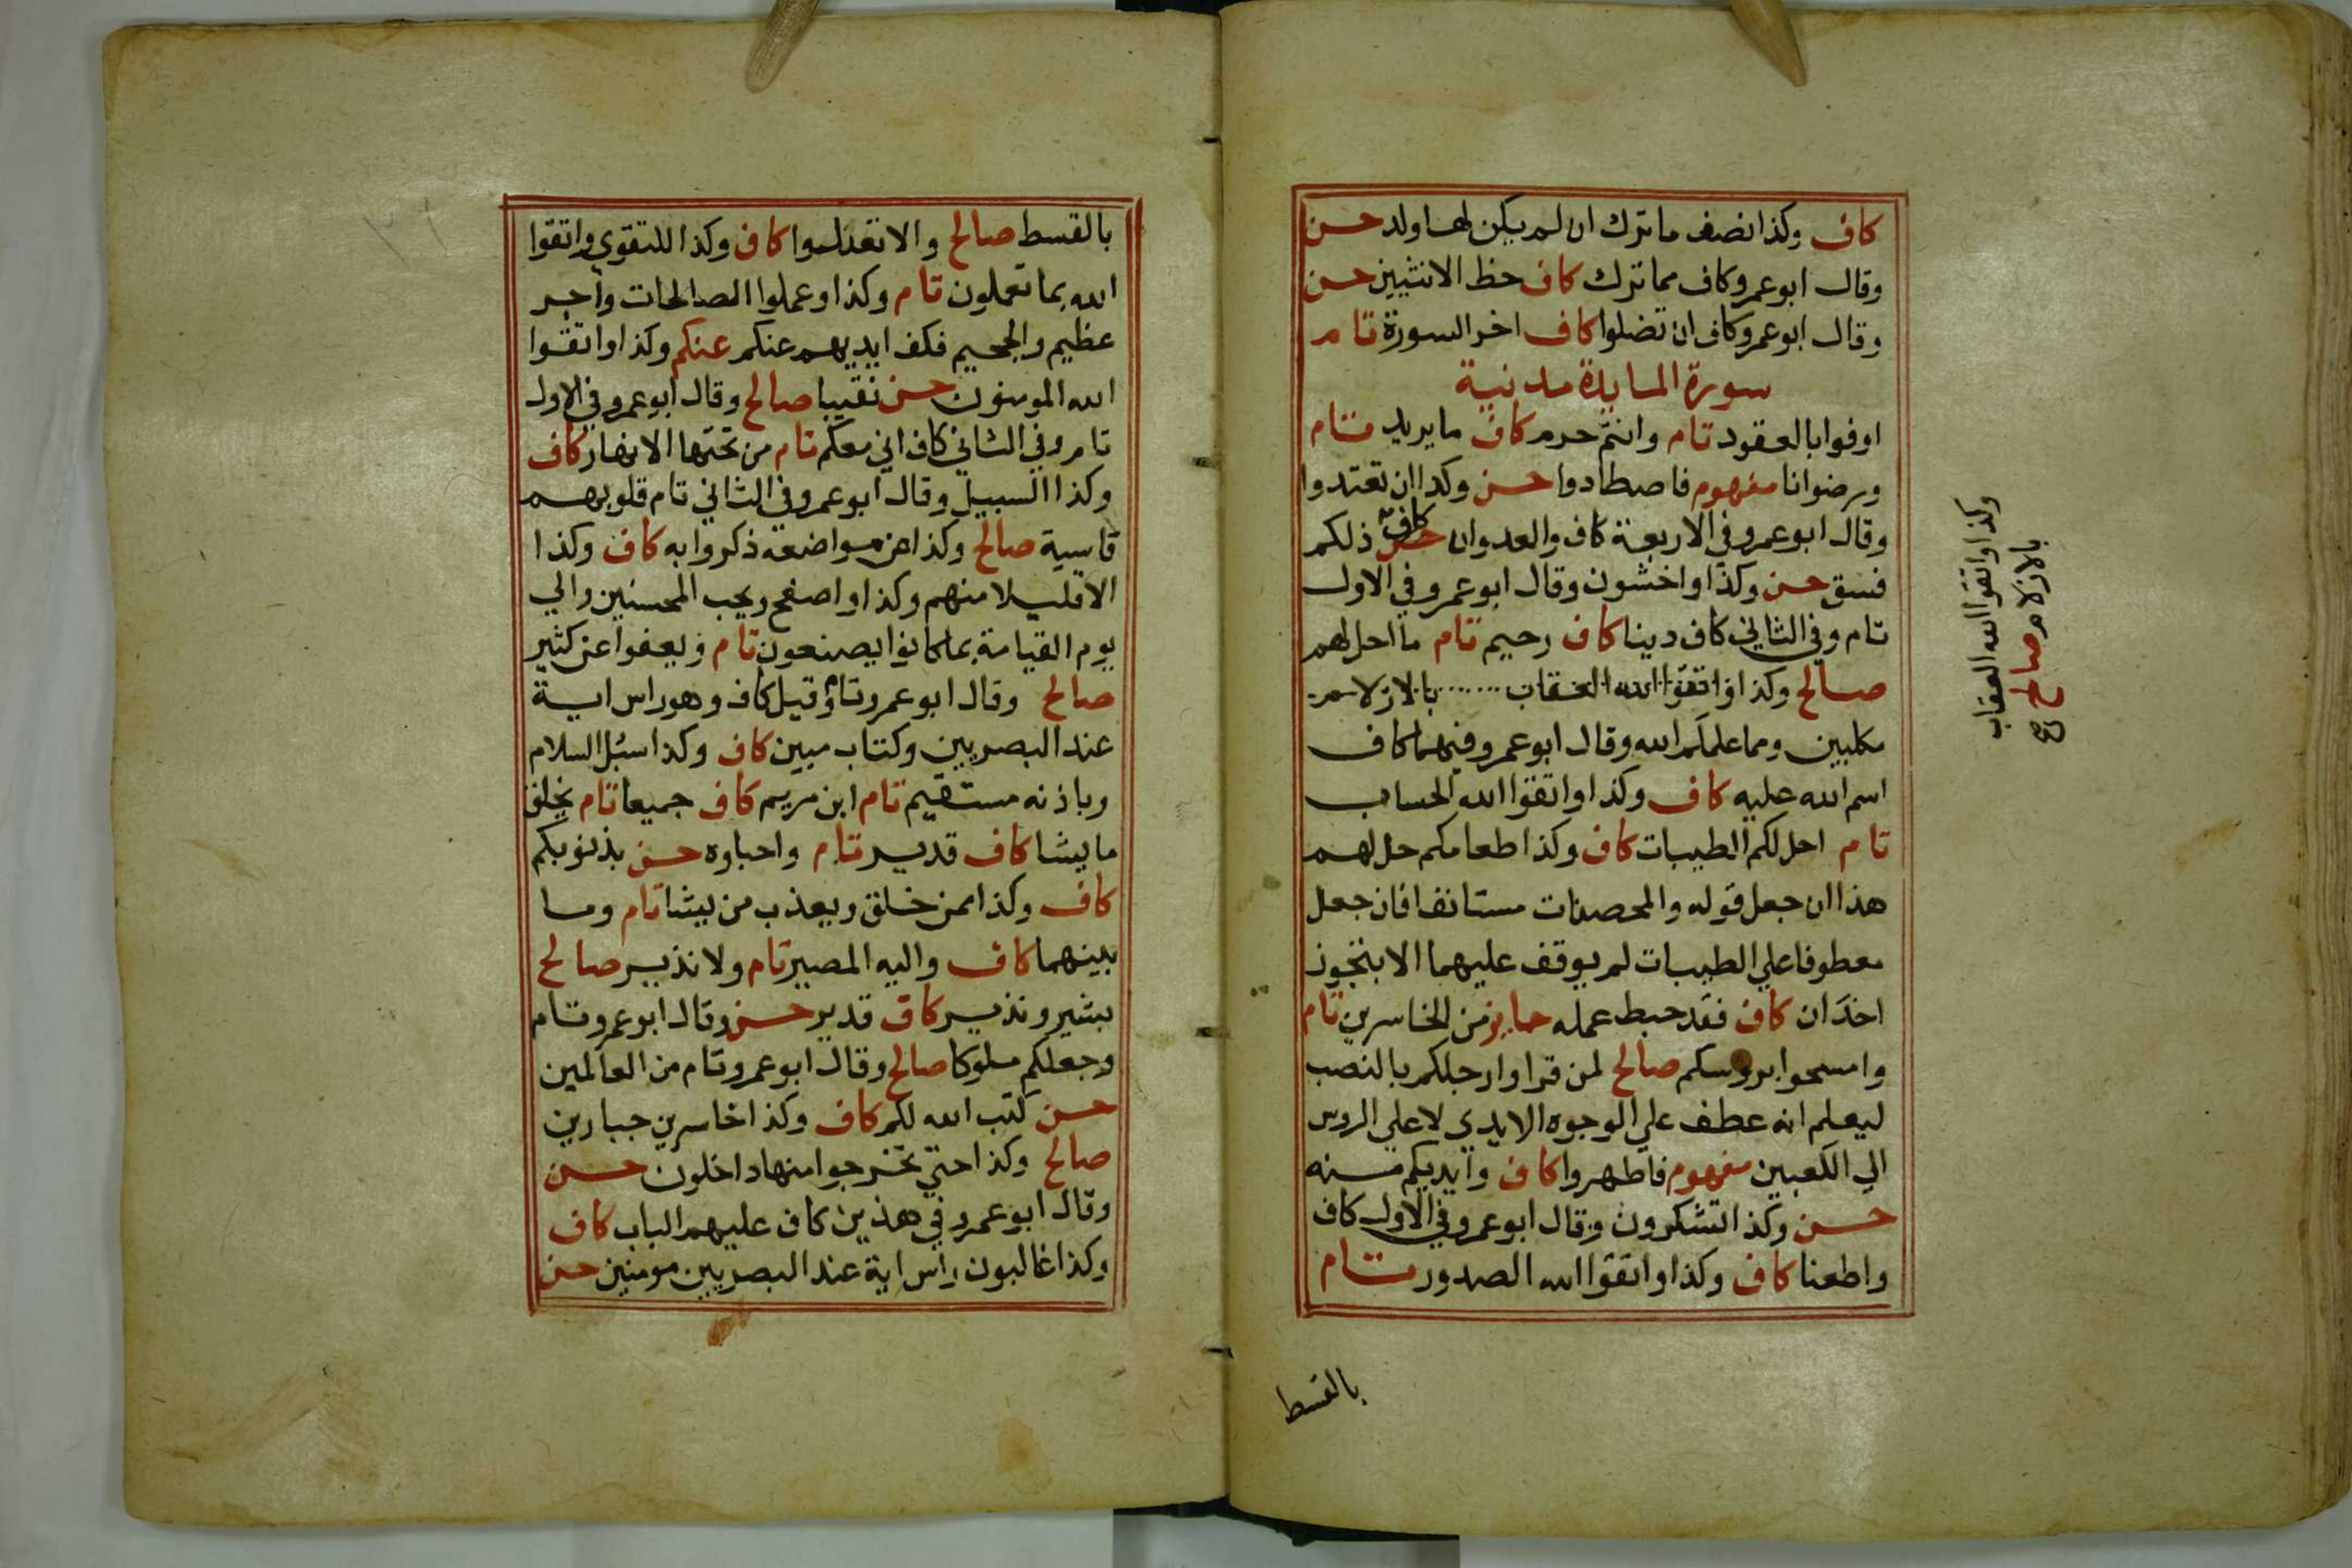 كاف وكذا نصف ما ترك ان لم يكن لها ولد حسن
وقال ابو عمرو كاف مما ترك كاف حظ الانثيين حسن
وقال ابو عمرو كاف ان تضلوا كاف اخر السورة تام
سورة المايدة مدنية
اوفوا بالعقود تام وانتم حرم كاف ما يريد تام
ورضوانا مفهوم فاصطادوا حسن وكذا ان تعتدوا
وقال ابو عمرو في الاربعة كاف والعدوان كاف ذلكم
فسق حسن وكذا واخشون وقال ابو عمرو في الاول
تام وفي الثاني كاف دينا كاف رحيم تام ما احل لهم
صالح وكذا واتقوا الله العقاب بالازلام
مكلبين ومما علمكم الله وقال ابو عمرو فيهما كاف
اسم الله عليه كاف وكذا واتقوا الله الحساب
تام احل لكم الطيبات كاف وكذا طعامكم حل لهم
هذا ان جعل قوله والمحصنات مستانفا فان جعل
معطوفا علي الطيبات لم يوقف عليهما الا بتجوز
اخدان كاف فقد حبط عمله جايز من الخاسرين تام
وامسحوا بروسكم صالح لمن قرا وارجلكم بالنصب
ليعلم انه عطف علي الوجوه الايدي لا علي الروس
الي الكعبين مفهوم فاطهروا كاف وايديكم منه
حسن وكذا تشكرون وقال ابو عمرو في الاول كاف
واطعنا كاف وكذا واتقوا الله الصدور تام
بالقسط
وكذا واتقوا الله العقاب
بالازلام صالح صح
بالقسط صالح والا تعدلوا كاف وكذا للتقوي واتقوا
الله بما تعملون تام وكذا وعملوا الصالحات واجر
عظيم والجحيم فكف ايديهم عنكم عنكم وكذا واتقوا
الله المومنون حسن نقيبا صالح وقال ابو عمرو في الاول
تام وفي الثاني كاف اني معكم تام من تحتها الانهار كاف
وكذا السبيل وقال ابو عمرو في الثاني تام قلوبهم
قاسية صالح وكذا عن مواضعه ذكروا به كاف وكذا
الا قليلا منهم وكذا واصفح ويحب المحسنين والي
يوم القيامة بما كانوا يصنعون تام ويعفوا عن كثير
صالح وقال ابو عمرو تام وقيل كاف وهو راس اية
عند البصريين وكتاب مبين كاف وكذا سبل السلام
وباذنه مستقيم تام ابن مريم كاف جميعا تام يخلق
ما يشا كاف قدير تام واحباوه حسن بذنوبكم
كاف وكذا ممن خلق ويعذب من يشا تام وما
بينهما كاف واليه المصير تام ولا نذير صالح
بشير ونذير كاف قدير حسن وقال ابو عمرو تام
وجعلكم ملوكا صالح وقال ابو عمرو تام من العالمين
حسن كتب الله لكم كاف وكذا خاسرين جبارين
صالح وكذا حتي تخرجوا منها داخلون حسن
وقال ابو عمرو في هذين كاف عليهم الباب كاف
وكذا غالبون راس اية عند البصريين مومنين حسن